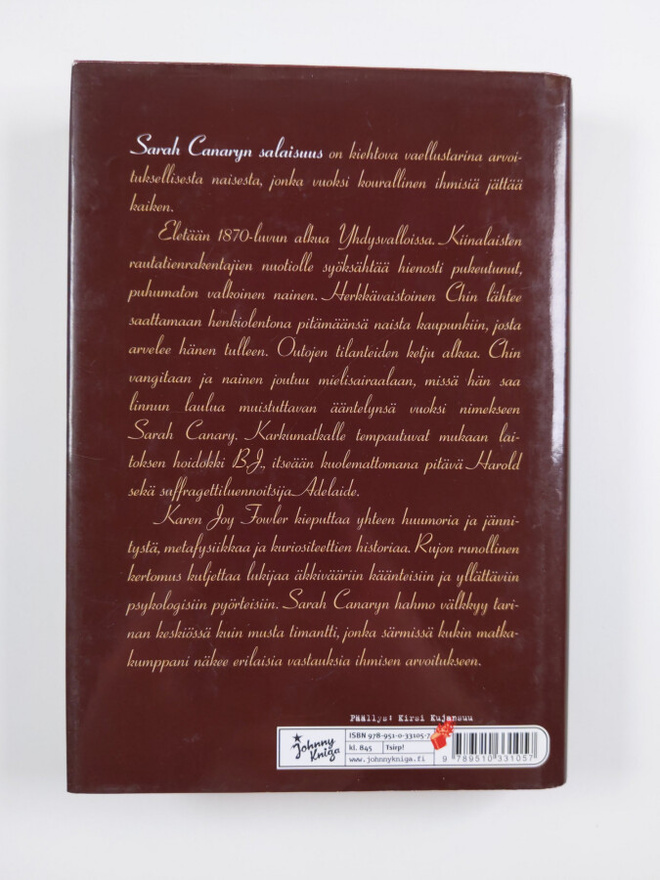 Sarah Canaryn salaisuus on kiehtova vaellustarina arvoi-
tuksellisesta naisesta, jonka vuoksi kourallinen ihmisiä jättää
kaiken.
Eletään 1870-luvun alkua Yhdysvalloissa. Kiinalaisten
rautatienrakentajien nuotiolle syöksähtää hienosti pukeutunut,
puhumaton valkoinen nainen. Herkkävaistoinen Chin lähtee
saattamaan henkiolentona pitämäänsä naista kaupunkiin, josta
arvelee hänen tulleen. Outojen tilanteiden ketju alkaa. Chin
vangitaan ja nainen joutuu mielisairaalaan, missä hän saa
linnun laulua muistuttavan ääntelynsä vuoksi nimekseen
Sarah Canary. Karkumatkalle tempautuvat mukaan lai-
toksen hoidokki B.J., itseään kuolemattomana pitävä Harold
sekä saffragettiluennoitsija Adelaide.
Karen Joy Fowler kieputtaa yhteen huumoria ja jänni-
tystä, metafysiikkaa ja kuriositeettien historiaa. Rujon runollinen
kertomus kuljettaa lukijaa äkkivääriin käänteisiin ja yllättäviin
psykologisiin pyörteisiin. Sarah Canaryn hahmo välkkyy tari-
nan keskiössä kuin musta timantti, jonka särmissä kukin matka-
kumppani näkee erilaisia vastauksia ihmisen arvoitukseen.
Päällys: Kirsi Kujansuu
Johnny
Kniga
ISBN 978-951-0-33105-7
kl. 845 Tsirp!
www.johnnykniga.fi
9 789510 331057